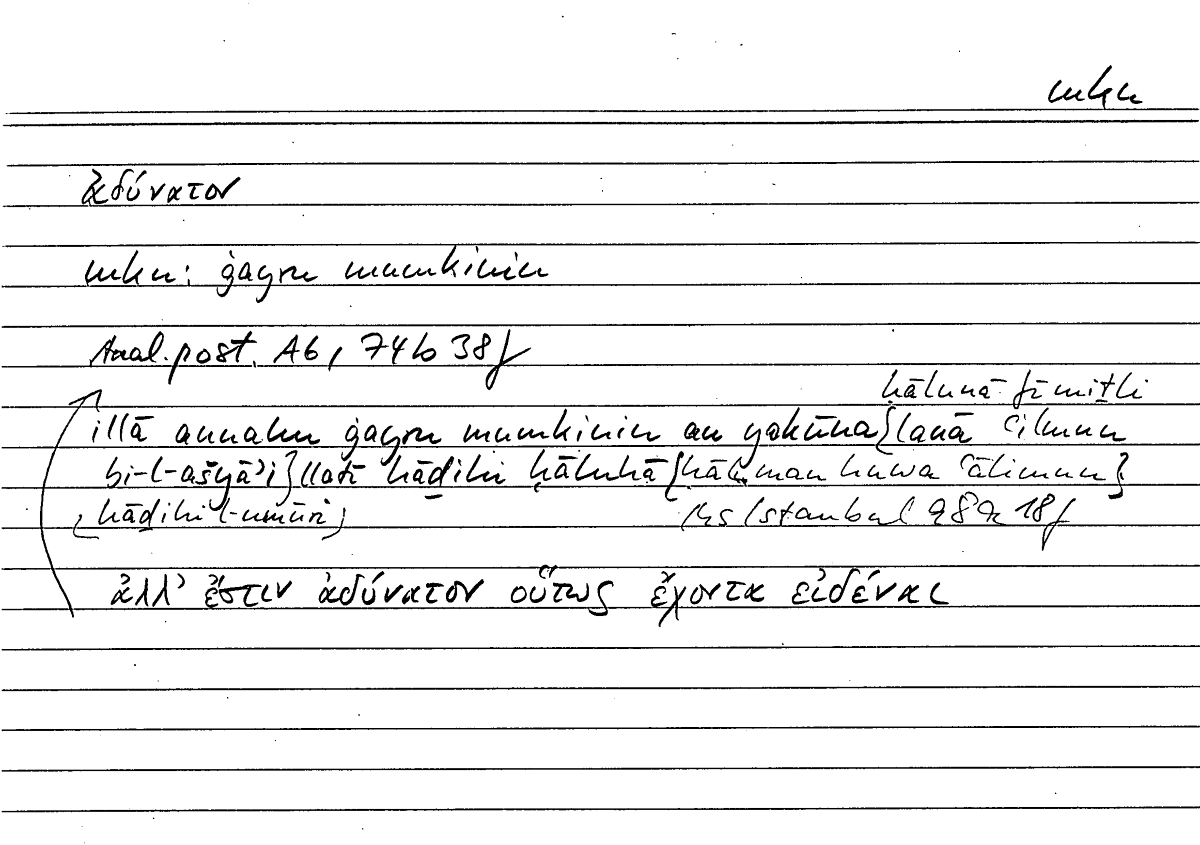 mkn
ἀδύνατον
mkn: ġayru mumkinin
Anal. post. A6, 74b38f
ḥālunā fī miṯli
illā annahu ġayru mumkinin an yakūna {lanā ʿilmun
bi-l-ašyāʾi} llatī hāḏihi ḥāluhā {ḥāla man huwa ʿālimun}
hāḏihi l-umūri
Hs Istanbul
ἀλλ’ ἔστιν ἀδύνατον οὕτως ἔχοντα εἰδέναι